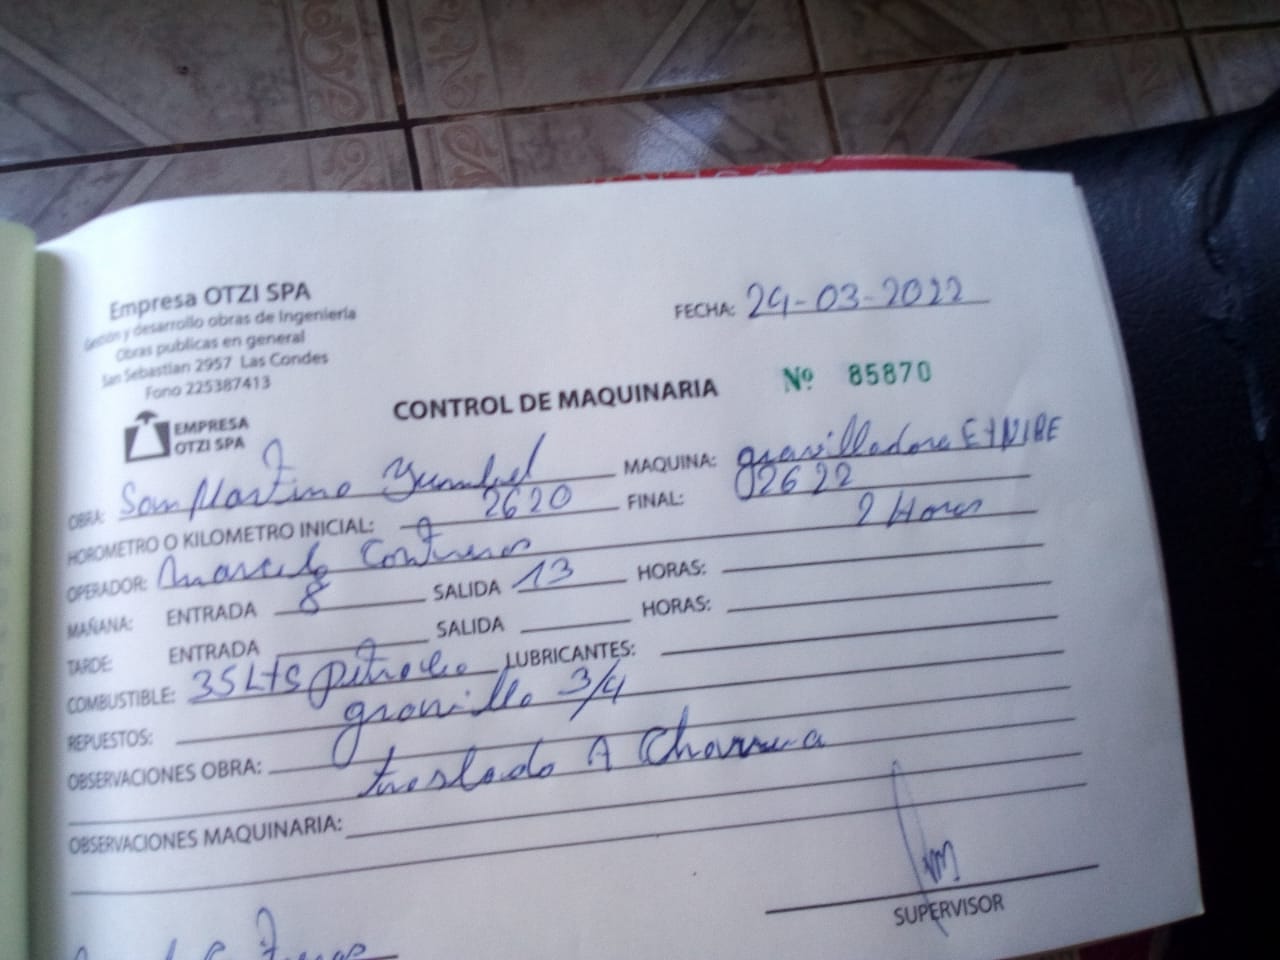 Empresa OTZI SPA
Gestión y desarrollo obras de Ingeniería
Obras publicas en general
San Sebastian 2957 Las Condes
Fono 225387413
FECHA: 29-03-2022
EMPRESA
OTZI SPA
CONTROL DE MAQUINARIA
Nº 85870
OBRA: San Martino Yumbel MAQUINA: gravilladora
HOROMETRO O KILOMETRO INICIAL: 2620 FINAL: 02622
OPERADOR: Marcelo Contreras 2 Horas
MAÑANA: ENTRADA 8 SALIDA 13 HORAS:
TARDE: ENTRADA SALIDA HORAS:
COMBUSTIBLE: 35 Lts petroleo LUBRICANTES:
REPUESTOS: gravilla 3/4
OBSERVACIONES OBRA:
traslado A Charrua
OBSERVACIONES MAQUINARIA:
SUPERVISOR